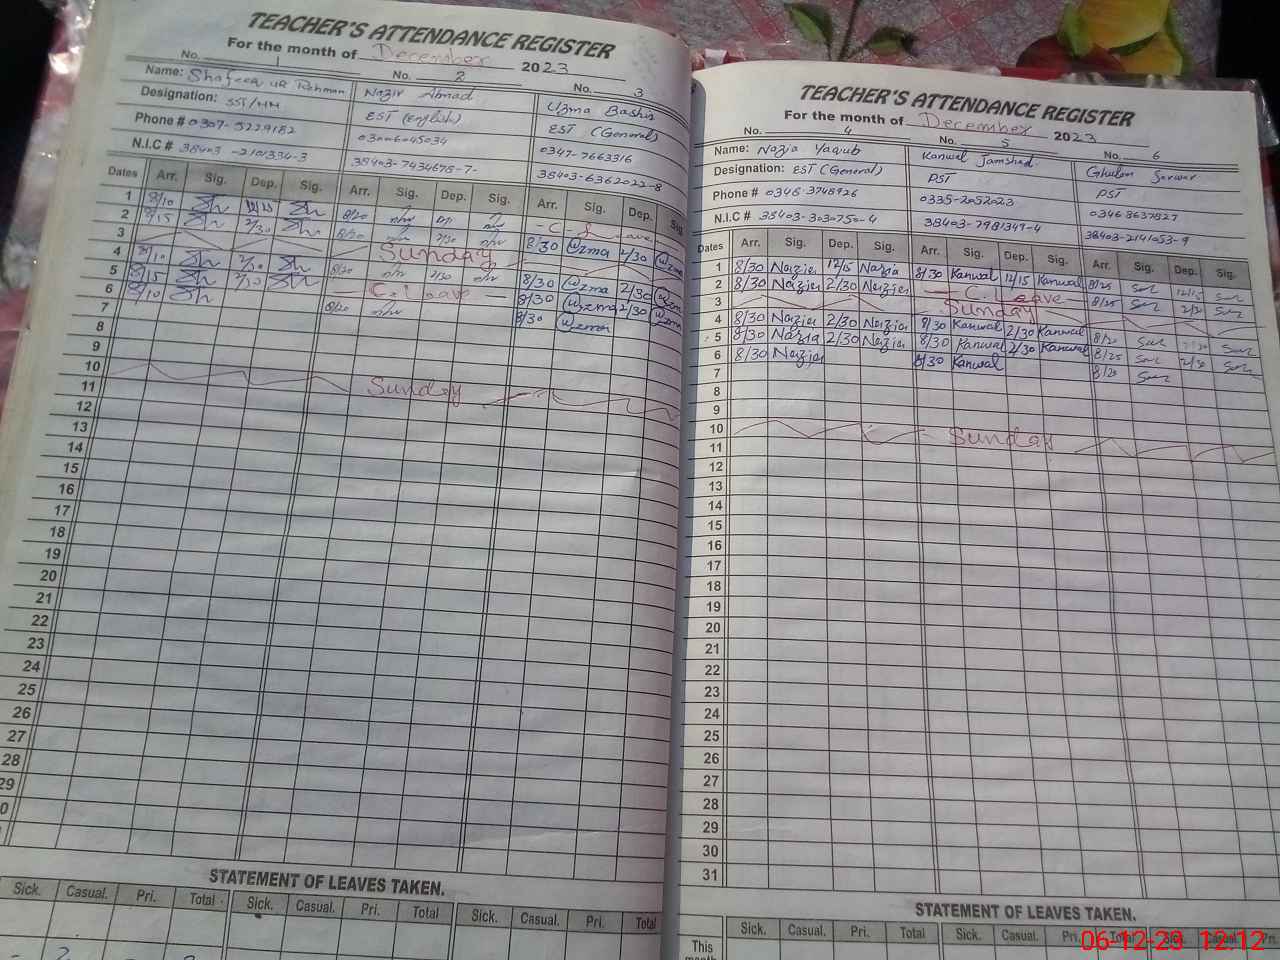 TEACHER'S ATTENDANCE REGISTER
For the month of December 2023
No. 1 No. 2 No. 3
Name: Shafeeq ur Rehman Nazir Ahmad Uzma Bashir
Designation: SST/HM EST (english) EST (General)
Phone # 0307-5229182 03006045034 0347-7663316
N.I.C # 38403-2101334-3 38403-7434675-7- 38403-6362022-8
Dates Arr. Sig. Dep. Sig. Arr. Sig. Dep. Sig. Arr. Sig. Dep. Sig.
1 8/10 12/15 8/20 - C - Leave
2 8/15 2/30 8/20 2/30 8/30 Uzma 2/30 Uzma
3 Sunday
4 8/10 2/30 8/20 2/30 8/30 Uzma 2/30 Uzma
5 8/15 2/30 - C. Leave - 8/30 Uzma 2/30 Uzma
6 8/10 8/20 8/30 Uzma
7
8
9
10 Sunday
11
12
13
14
15
16
17
18
19
20
21
22
23
24
25
26
27
28
29
0
STATEMENT OF LEAVES TAKEN.
Sick. Casual. Pri. Total Sick. Casual. Pri. Total Sick. Casual. Pri. Total
TEACHER'S ATTENDANCE REGISTER
For the month of December 2023
No. 4 No. 5 No. 6
Name: Nazia Yaqub Kanwal Jamshed Ghulam Sarwar
Designation: EST (General) PST PST
Phone # 0346-3748926 0335-2052023 03468637827
N.I.C # 38403-3030750-4 38403-7981349-4 38403-2141053-9
Dates Arr. Sig. Dep. Sig. Arr. Sig. Dep. Sig. Arr. Sig. Dep. Sig.
1 8/30 Nazia 12/15 Nazia 8/30 Kanwal 12/15 Kanwal 8/25 12/15
2 8/30 Nazia 2/30 Nazia - C. Leave - 8/25
3 Sunday
4 8/30 Nazia 2/30 Nazia 8/30 Kanwal 2/30 Kanwal 8/20
5 8/30 Nazia 2/30 Nazia 8/30 Kanwal 2/30 Kanwal 8/25 2/30
6 8/30 Nazia 8/30 Kanwal 8/20
7
8
9
10 Sunday
11
12
13
14
15
16
17
18
19
20
21
22
23
24
25
26
27
28
29
30
31
STATEMENT OF LEAVES TAKEN.
Sick. Casual. Pri. Total Sick. Casual. Pri. Total Sick. Casual. Pri.
This
month
06-12-23 12:12